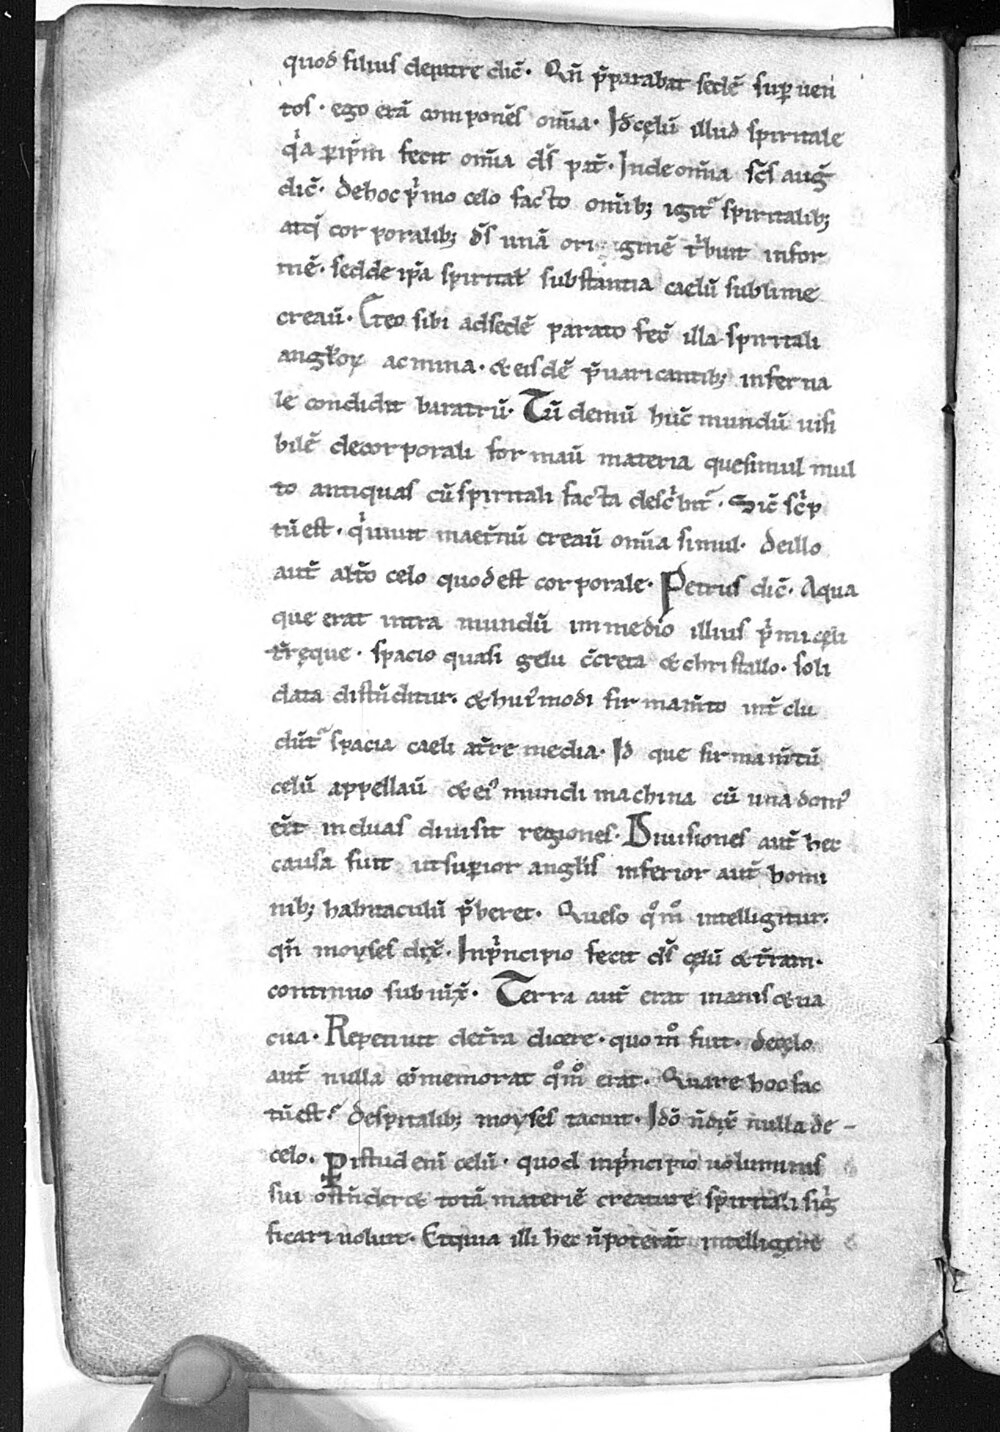 quod filius depatre dic̄. Qn̄ p̄parabat sedē sup uen
tos. ego erā componēs om̄a. Id cęlū illud spiritale
qͥa ꝑ ip̄m fecit om̄a d̄s pat̄. Inde om̄a sc̄s auḡ
dic̄. de hoc pͥmo celo facto om̄ib; igit᷑ spiritalib;
atq; corporalib; d̄s unā originē tͥbuit infor
mē. sed de ip̄a spiritał substantia caelū sublime
creaū. Et eo sibi adsedē parato fec̄ illa spiritali
angłoꝝ acmina. & eisdē p̄uaricantib; inferna
le condidit baratrū. Tū demū hūc mundū uisi
bilē decorporali formaū materia que simul mul
to antiquas cū spiritali facta descͥbit᷑. Sic̄ scͥp
tū est. qͥ uiuit in aet̄nū creaū om̄a simul. de illo
aut̄ alt̄o celo quod est corporale. Petrus dic̄. Aqua
que erat intra mundū in medio illius pͥmi cęli
t̄ręque. spacio quasi gelu c̄creta & christallo. soli
data distn̄ditur. & hui᷒modi firmam̄to int̄clu
dūt᷑ spacia caeli at̄re media. Id que firmam̄tū
celū appellaū & ei᷒ mundi machina cū una dom᷒
eēt in duas diuisit regiones. Diuisiones aut̄ hec
causa fuit ut suꝑior angłis inferior aut̄ homi
nib; habitaculū p̄beret. Queso qͦm̊ intelligitur.
qn̄ moyses dix̄. In pͥncipio fecit d̄s cęlū & t̄ram.
continuo subiūx̄. Terra aut̄ erat inanis & ua
cua. Repetiuit det̄ra dicere. quom̊ fuit. de cęlo
aut̄ nulla cōmemorat qͦm̊ erat. Quare hoc fac
tū est? de spitalib; moyses tacuit. Idō n̄ dix̄ nulla de-
celo. P istud enī celū. quod in pͥncipio uoluminis
sui ostn̄deret totā materiē creature spiritali siḡ
ficari uoluit. Et quia illi hec n̄ poterāt intelligere